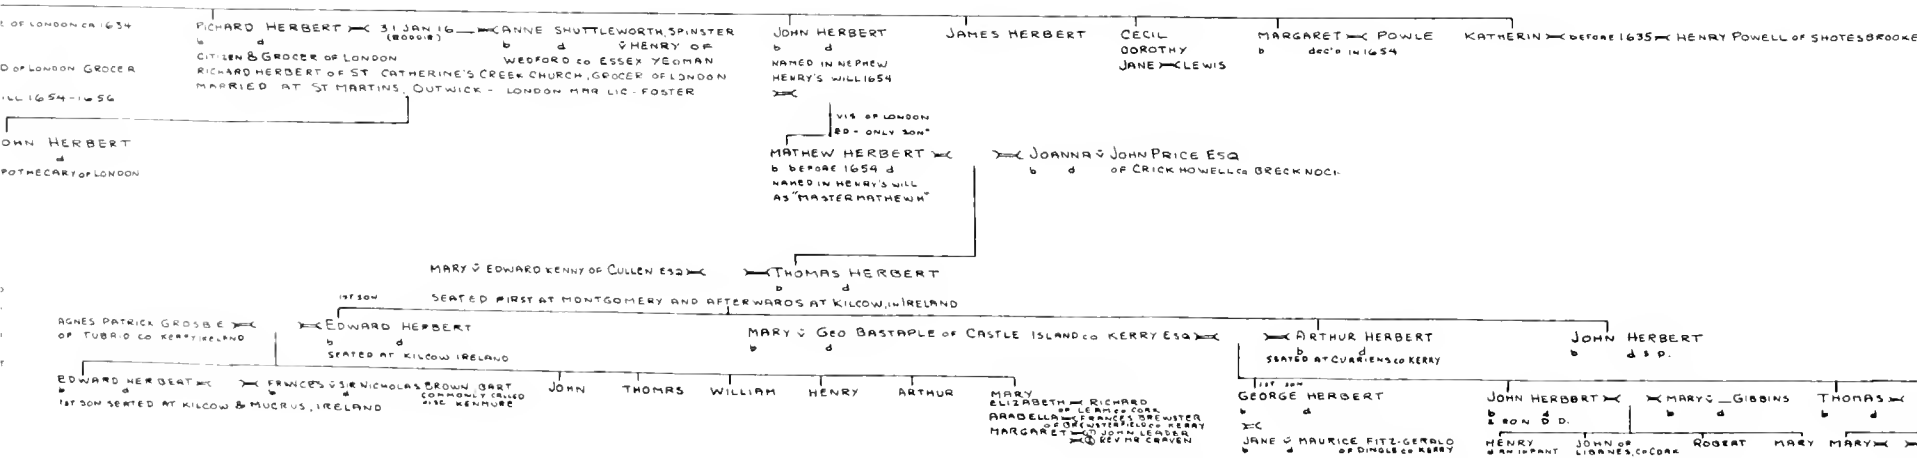 OF LONDON CA 1634
RICHARD HERBERT 31 JAN 16__ ANNE SHUTTLEWORTH, SPINSTER
(BODDIE)
b d b d HENRY OF
CITIZEN & GROCER OF LONDON WEDFORD CO ESSEX YEOMAN
RICHARD HERBERT OF ST CATHERINE'S CREEK CHURCH, GROCER OF LONDON
MARRIED AT ST MARTINS, OUTWICK - LONDON MAR LIC - FOSTER
JOHN HERBERT
b d
NAMED IN NEPHEW
HENRY'S WILL 1654
JAMES HERBERT
CECIL
DOROTHY
JANE LEWIS
MARGARET POWLE
b dec'd IN 1654
KATHERIN BEFORE 1635 HENRY POWELL OF SHOTESBROOKE
OF LONDON GROCER
1654-1656
OHN HERBERT
d
POTHECARY OF LONDON
VIS OF LONDON
ED - ONLY SON"
MATHEW HERBERT
b BEFORE 1654 d
NAMED IN HENRY'S WILL
AS "MASTER MATHEW H"
JOANNA JOHN PRICE ESQ
b d OF CRICK HOWELL CO BRECKNOC
MARY EDWARD KENNY OF CULLEN ESQ THOMAS HERBERT
b d
SEATED FIRST AT MONTGOMERY AND AFTERWARDS AT KILCOW, IN IRELAND
1ST SON
AGNES PATRICK GROSBE
OF TUBRID CO KERRY IRELAND
EDWARD HERBERT
b d
SEATED AT KILCOW IRELAND
MARY GEO BASTAPLE OF CASTLE ISLAND CO KERRY ESQ
b d
ARTHUR HERBERT
b d
SEATED AT CURRIENS CO KERRY
JOHN HERBERT
b d S P.
EDWARD HERBERT FRANCES SIR NICHOLAS BROWN, BART
b d COMMONLY CALLED
1ST SON SEATED AT KILCOW & MUCRUS, IRELAND VISC KENMURE
JOHN
THOMAS
WILLIAM
HENRY
ARTHUR
MARY
ELIZABETH RICHARD
OF LEAM CO CORK
ARABELLA FRANCES BREWSTER
OF BREWSTERFIELD CO KERRY
MARGARET ① JOHN LEADER
② REV MR CRAVEN
1ST SON
GEORGE HERBERT
b d
JANE MAURICE FITZ-GERALD
b d OF DINGLE CO KERRY
JOHN HERBERT MARY __ GIBBINS
b d b d
& RON D D.
THOMAS
b d
HENRY
d AN INFANT
JOHN OF
LIBANES, CO CORK
ROBERT
MARY
MARY